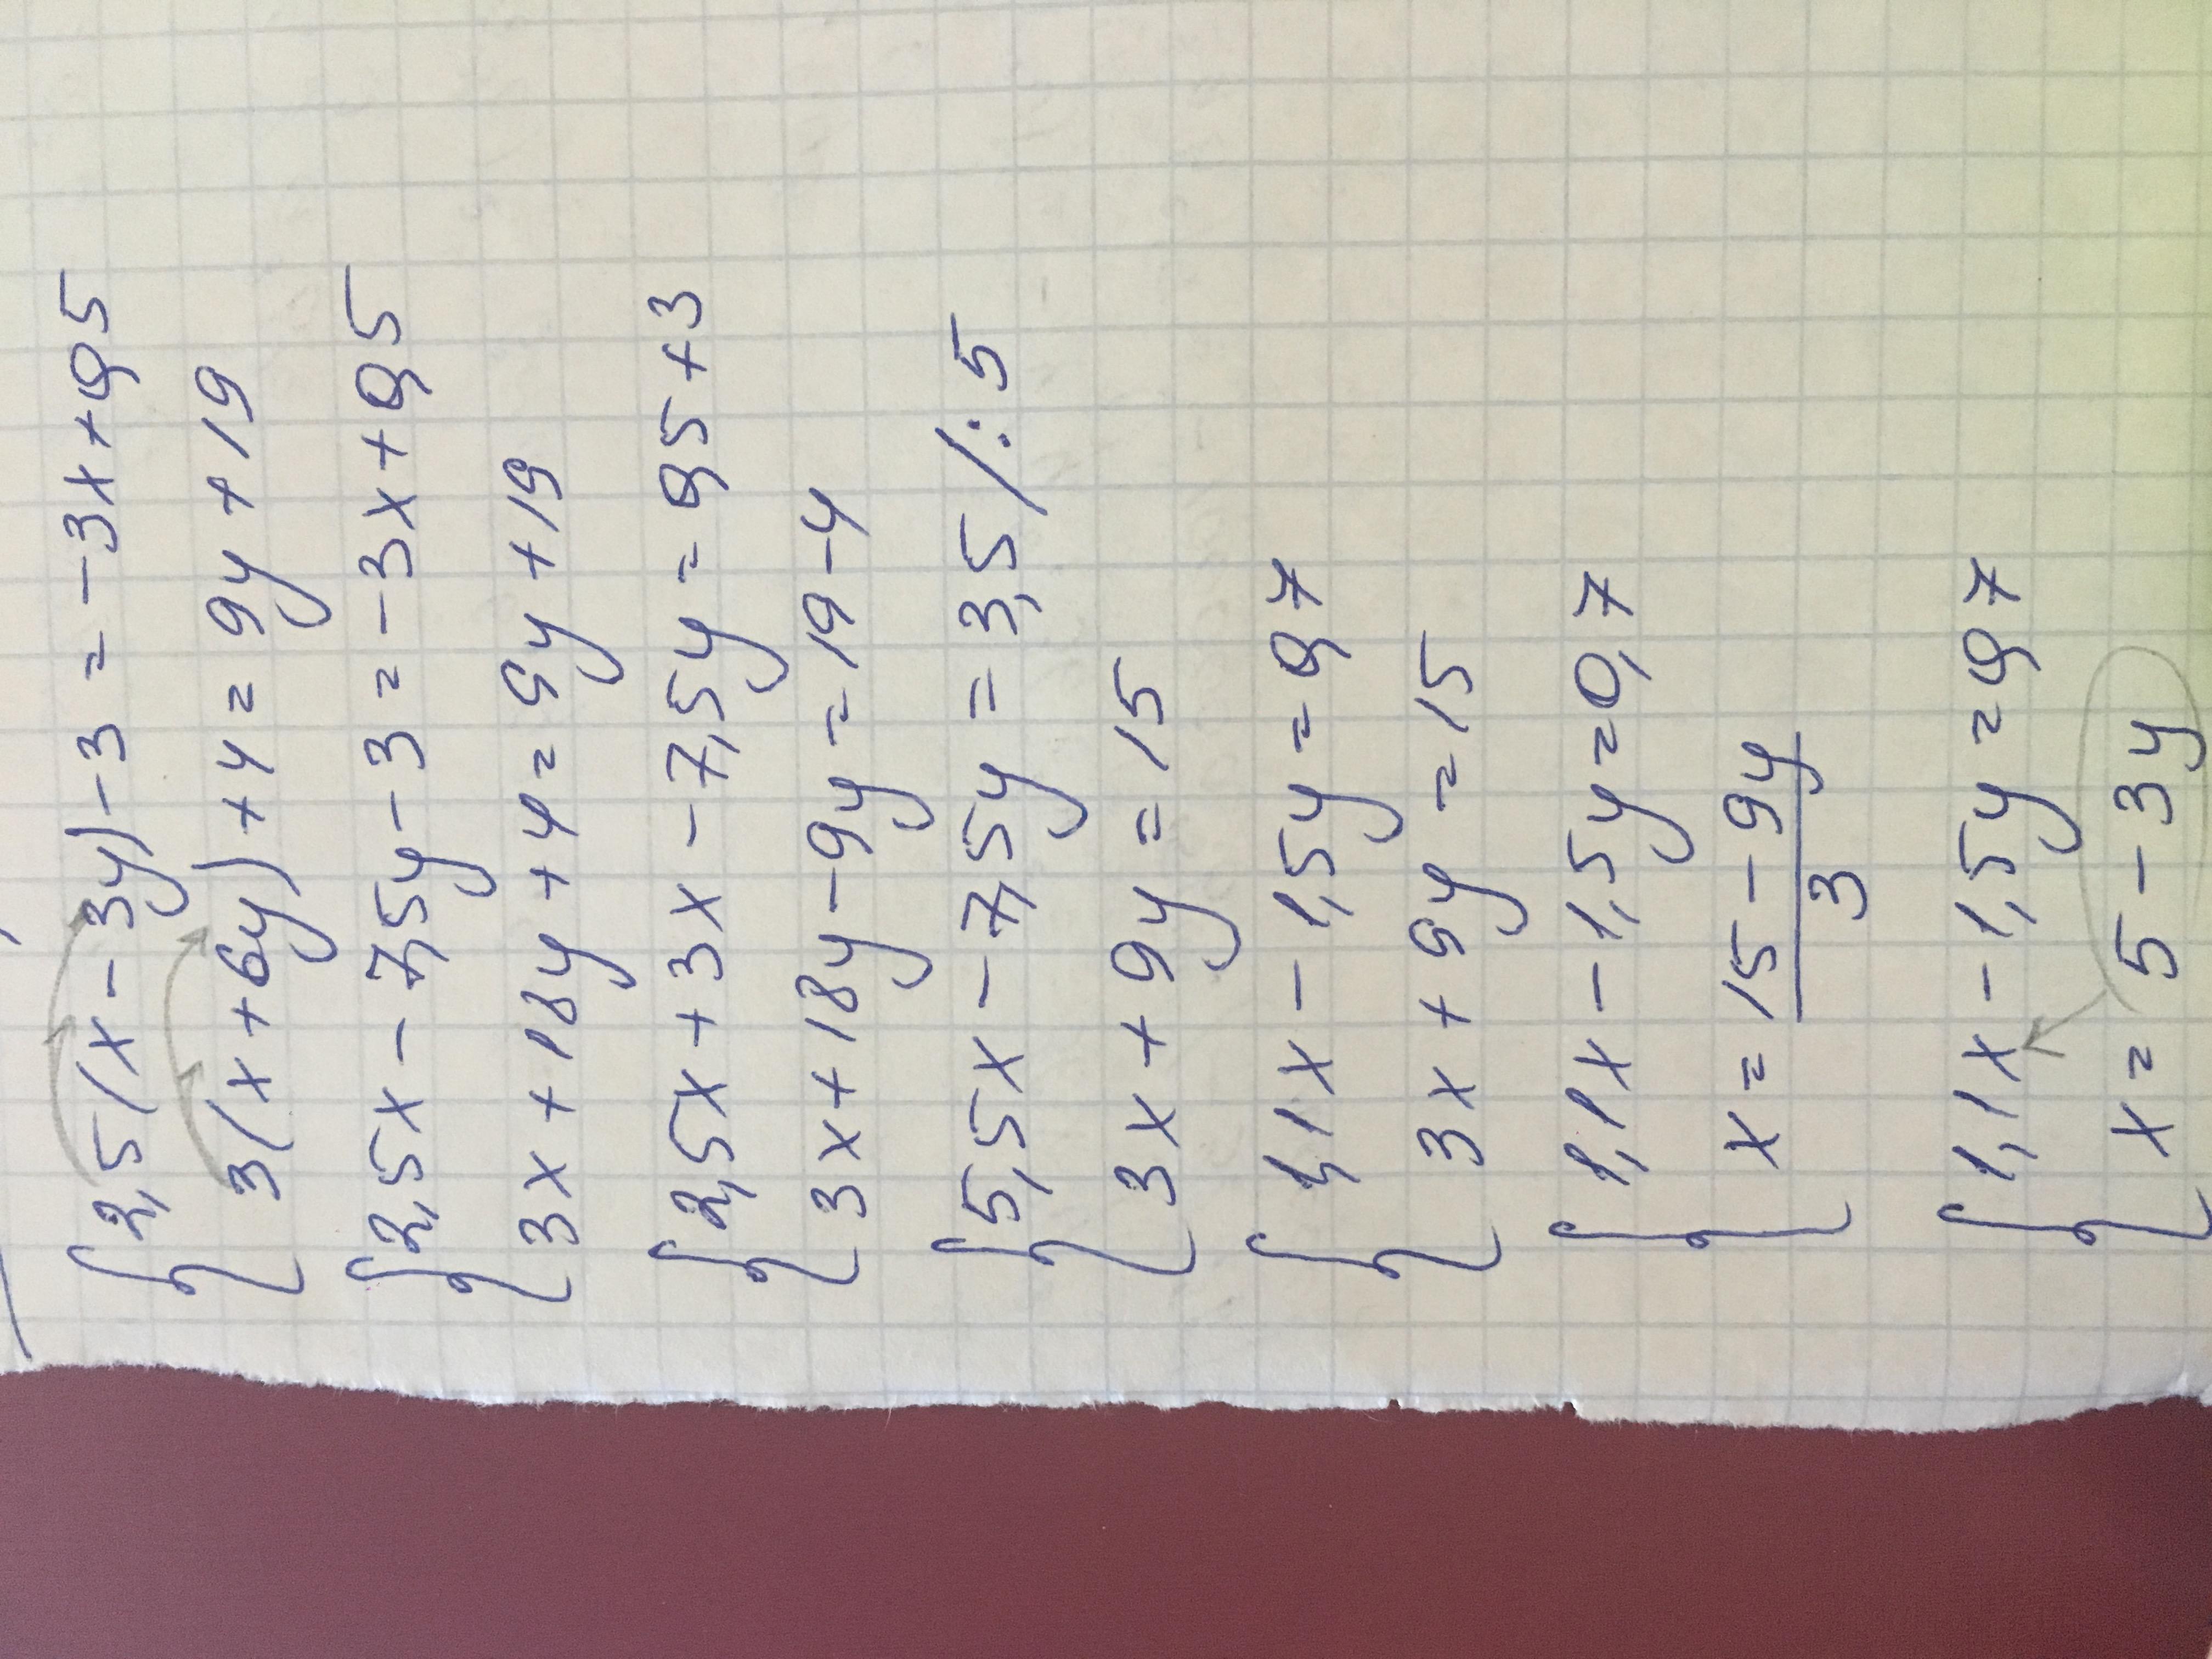 2,5(x-3y)-3=-3x+0,5
3(x+6y)+4=9y+19
2,5x-7,5y-3=-3x+0,5
3x+18y+4=9y+19
2,5x+3x-7,5y=0,5+3
3x+18y-9y=19-4
5,5x-7,5y=3,5/:5
3x+9y=15
1,1x-1,5y=0,7
3x+9y=15
1,1x-1,5y=0,7
x=15-9y
3
1,1x-1,5y=0,7
x=5-3y